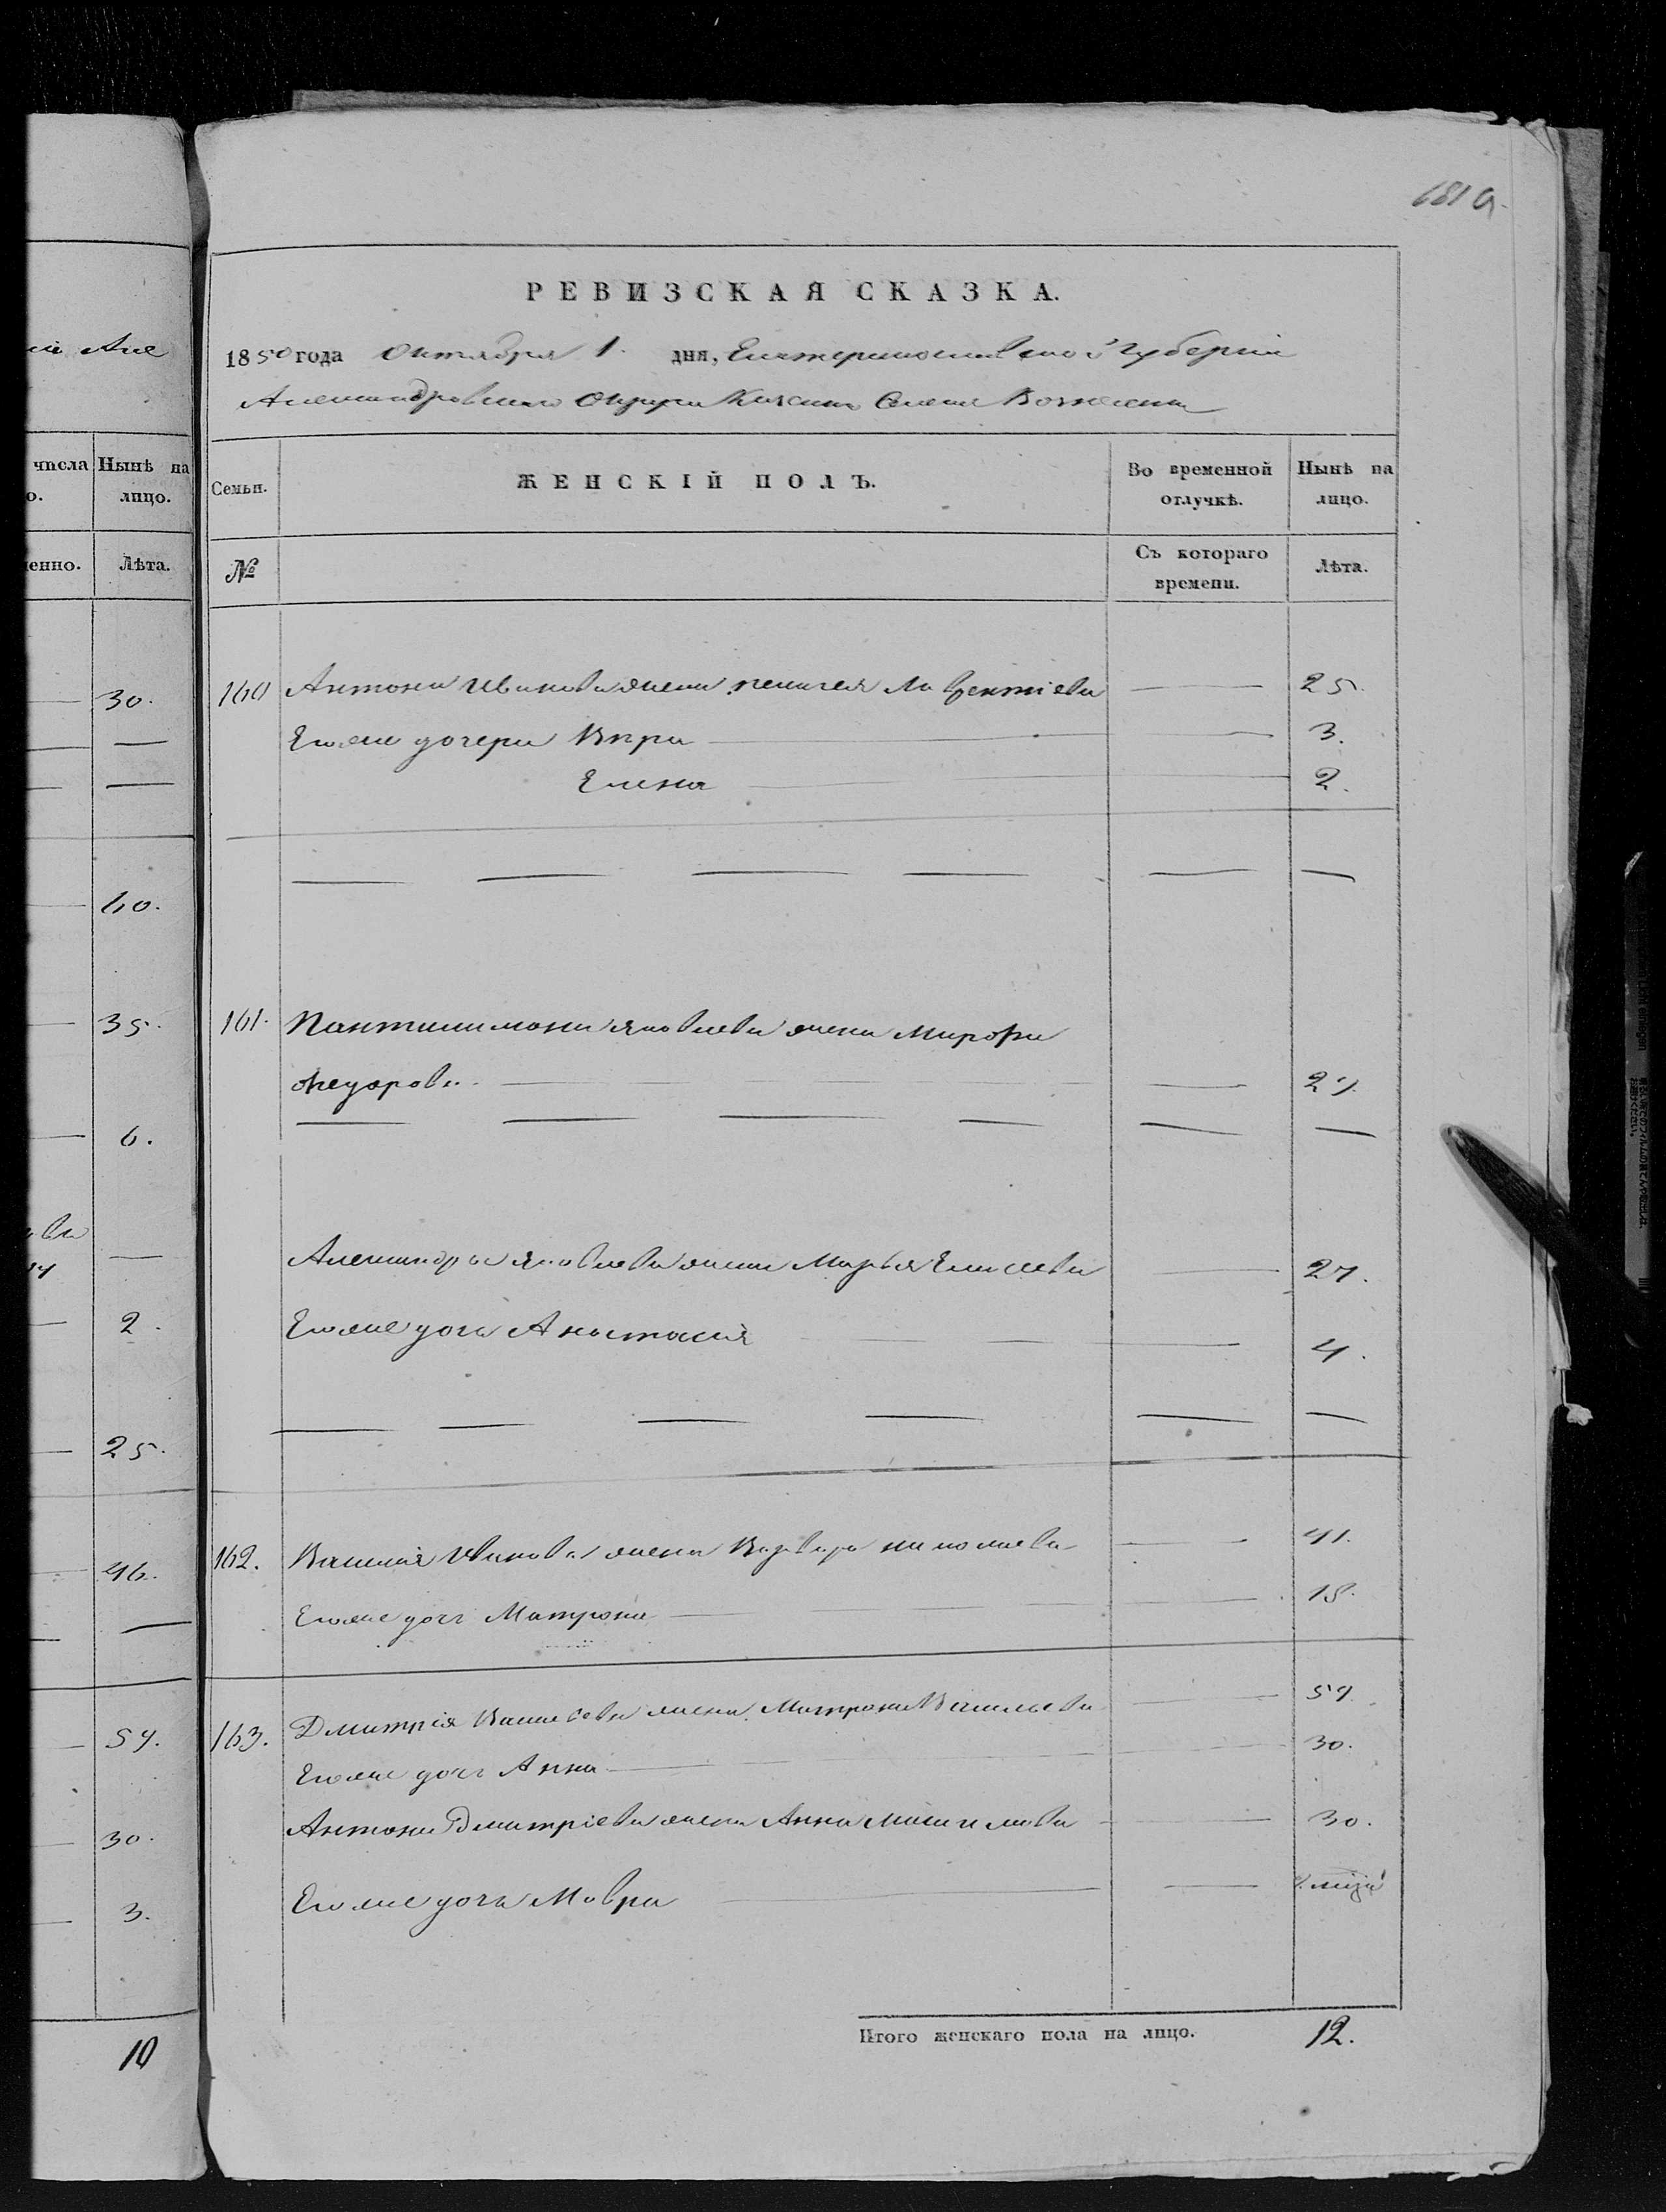 181 а.
іи Але
РЕВИЗСКАЯ СКАЗКА.
1850 года Октября 1. дня, Екатеринославской Губерніи
Александровскаго Округа Казенна Селеня Вознесенки
числа Нынѣ на
о. лицо.
Семьи. ЖЕНСКІЙ ПОЛЪ. Во временной отлучкѣ. Нынѣ на лицо.
менно. Лѣта.
№ Съ котораго времени. Лѣта.
30.
60.
35.
6.
2.
25.
46.
57.
30.
3.
10
160 Антона Иванова жена Лаврентіева 25.
Его же дочери Вѣра 3.
Елена 2.
161. Пантилимона Яковлева жена Марфа
Федорова 27.
Александра Яковлева жена Марья Елисеева 27.
Его же дочь Анастасія 4.
162. Василія Иванова жена Варвара Николаева 41.
Его же дочь Матрона 15.
163. Дмитрія жена Матрона Васильева 57.
Его же дочь Анна 30.
Антона Дмитріева жена Анна Михайлова 30.
Его же дочь Мавра
Итого женскаго пола на лицо. 12.